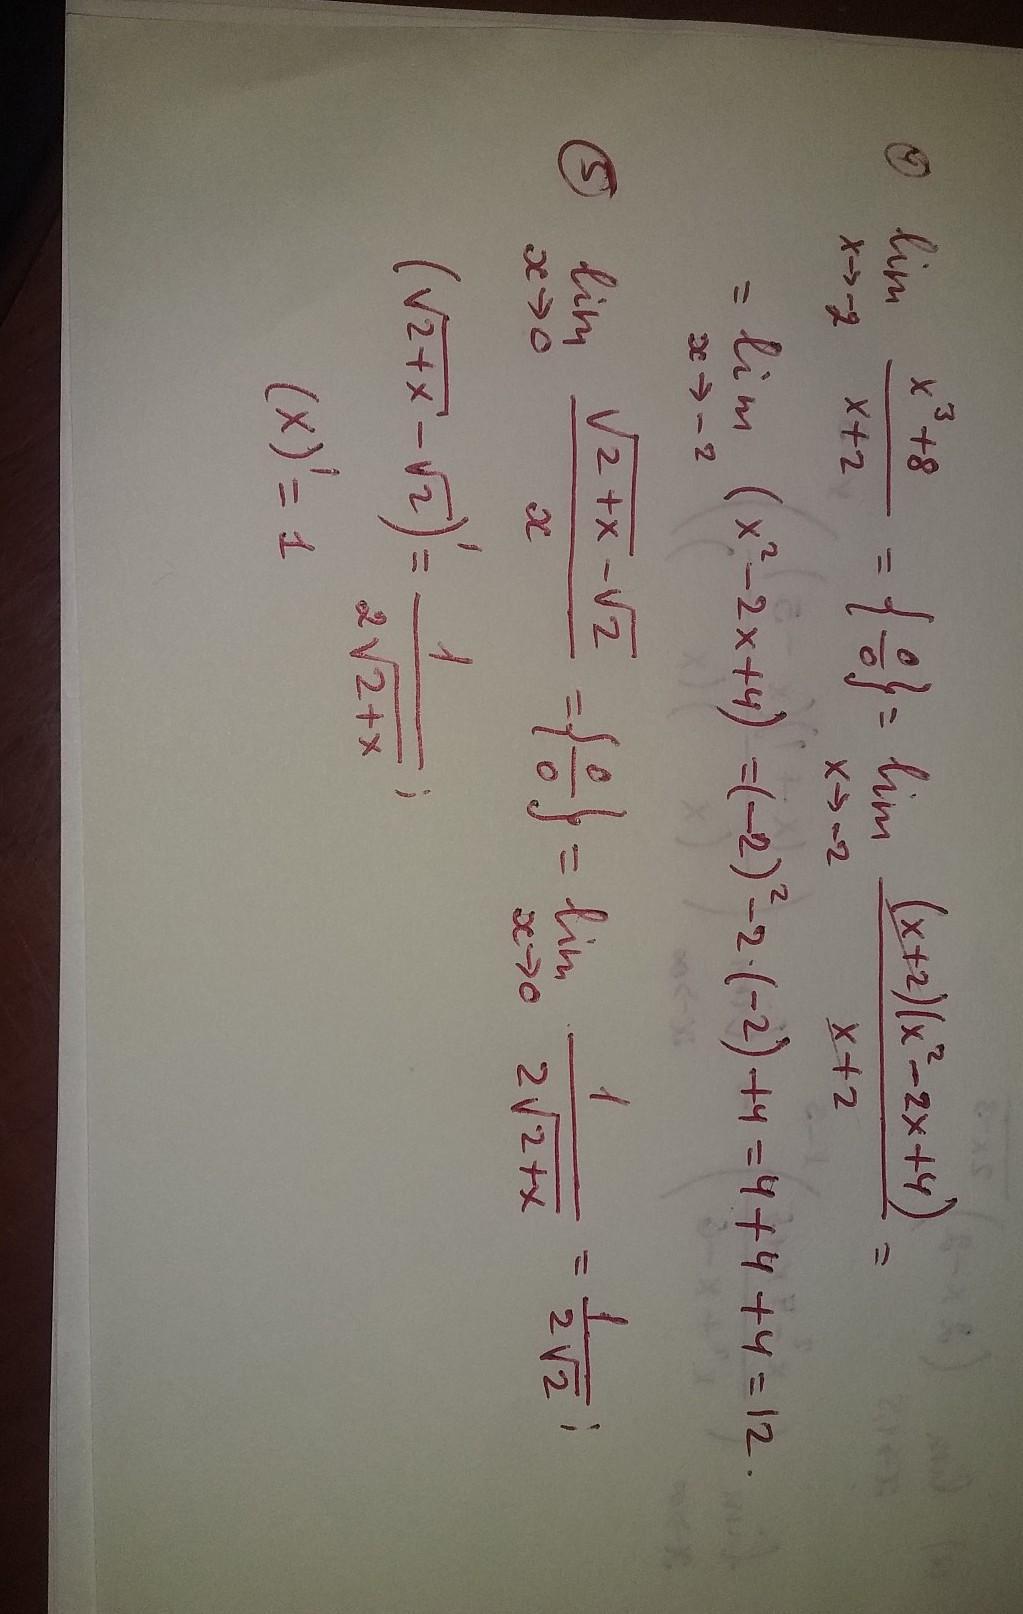 ④ lim x→-2 (x³+8)/(x+2) = {0/0} = lim x→-2 ((x+2)(x²-2x+4))/(x+2) =
= lim x→-2 (x²-2x+4) = (-2)²-2·(-2)+4 = 4+4+4 = 12.
⑤ lim x→0 (√(2+x) - √2)/x = {0/0} = lim x→0 1/(2√(2+x)) = 1/(2√2);
(√(2+x) - √2)' = 1/(2√(2+x));
(x)' = 1